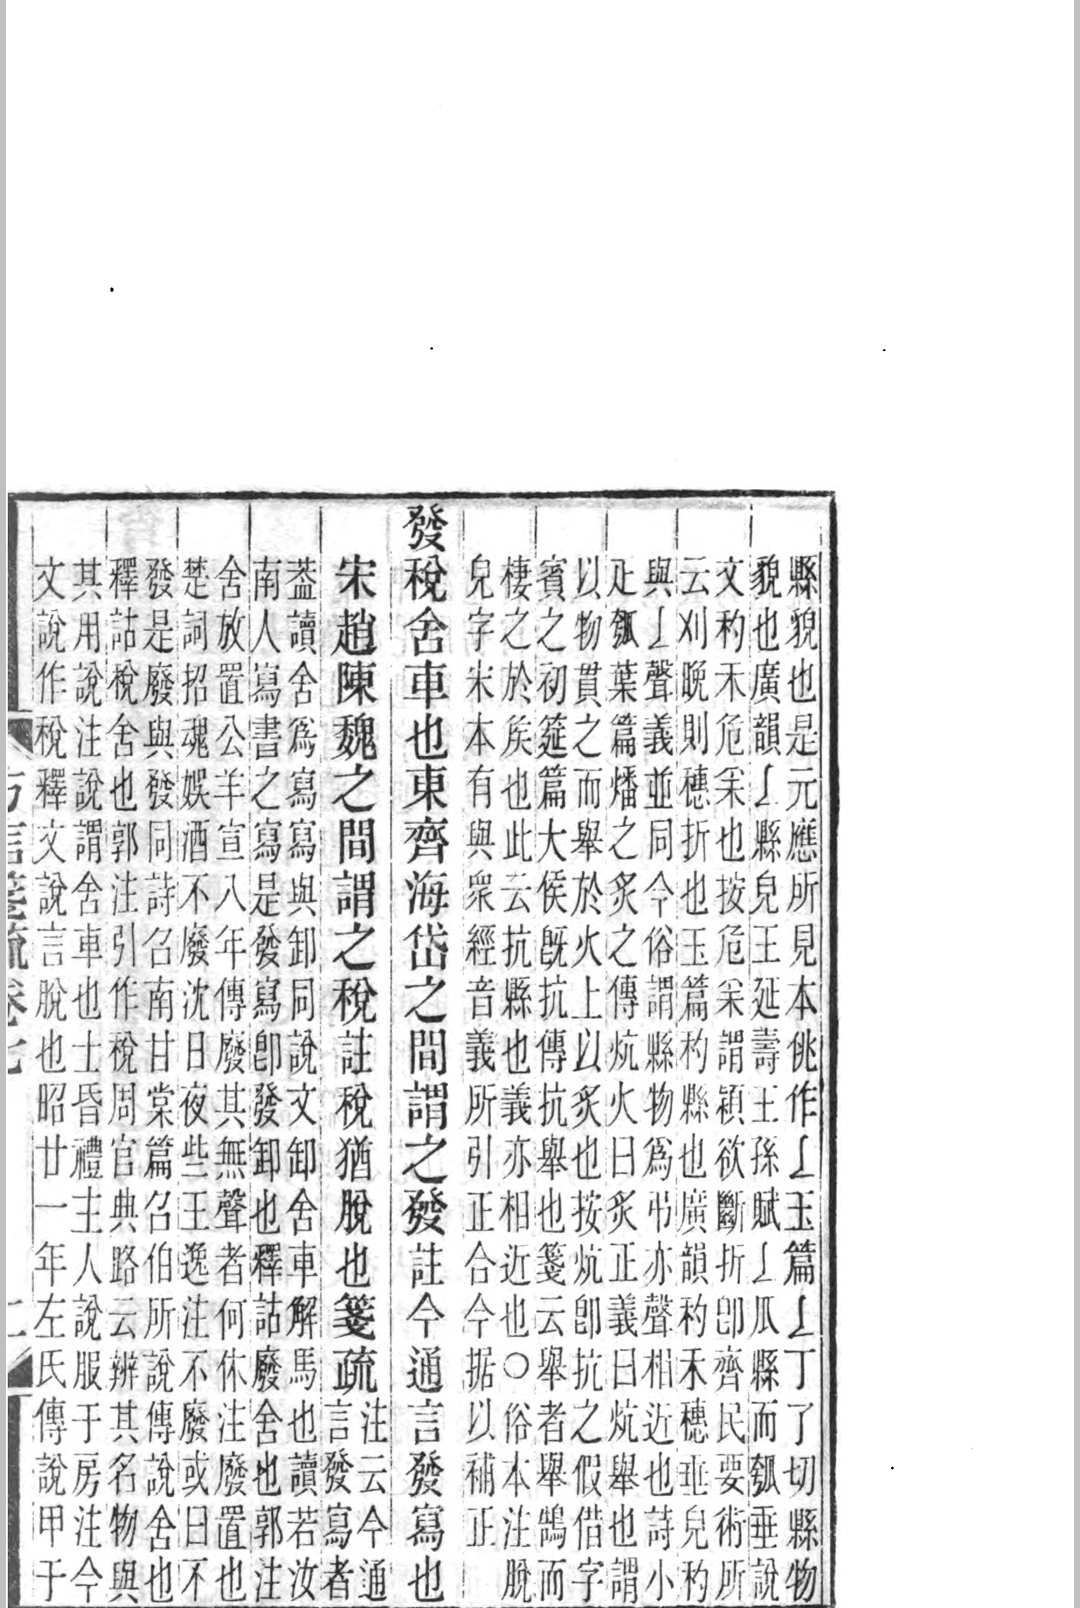 縣貌也是元應所見本佻作𠄌玉篇𠄌丁了切縣物
貌也廣韻𠄌縣皃王延壽王孫賦𠄌瓜縣而瓠垂說
文杓禾危采也按危采謂穎欲斷折卽齊民要術所
云刈晚則穗折也玉篇杓縣也廣韻杓禾穗垂皃杓
與𠄌聲義並同今俗謂縣物爲弔亦聲相近也詩小
疋瓠葉篇燔之炙之傳炕火曰炙正義曰炕舉也謂
以物貫之而舉於火上以炙也按炕卽抗之假借字
賓之初筵篇大侯旣抗傳抗舉也箋云舉者舉鵠而
棲之於矦也此云抗縣也義亦相近也○俗本注脫
皃字宋本有與衆經音義所引正合今据以補正
發稅舍車也東齊海岱之間謂之發註今通言發寫也
宋趙陳魏之間謂之稅註稅猶脫也箋疏注云今通言發寫者
葢讀舍爲寫寫與卸同說文卸舍車解馬也讀若汝
南人寫書之寫是發寫卽發卸也釋詁廢舍也郭注
舍放置公羊宣八年傳廢其無聲者何休注廢置也
楚詞招魂娛酒不廢沈日夜些王逸注不廢或曰不
發是廢與發同詩召南甘棠篇召伯所說傳說舍也
釋詁稅舍也郭注引作稅周官典路云辨其名物與
其用說注說謂舍車也士昏禮主人說服于房注今
文說作稅釋文說言脫也昭廿一年左氏傳說甲于
方言箋疏卷七